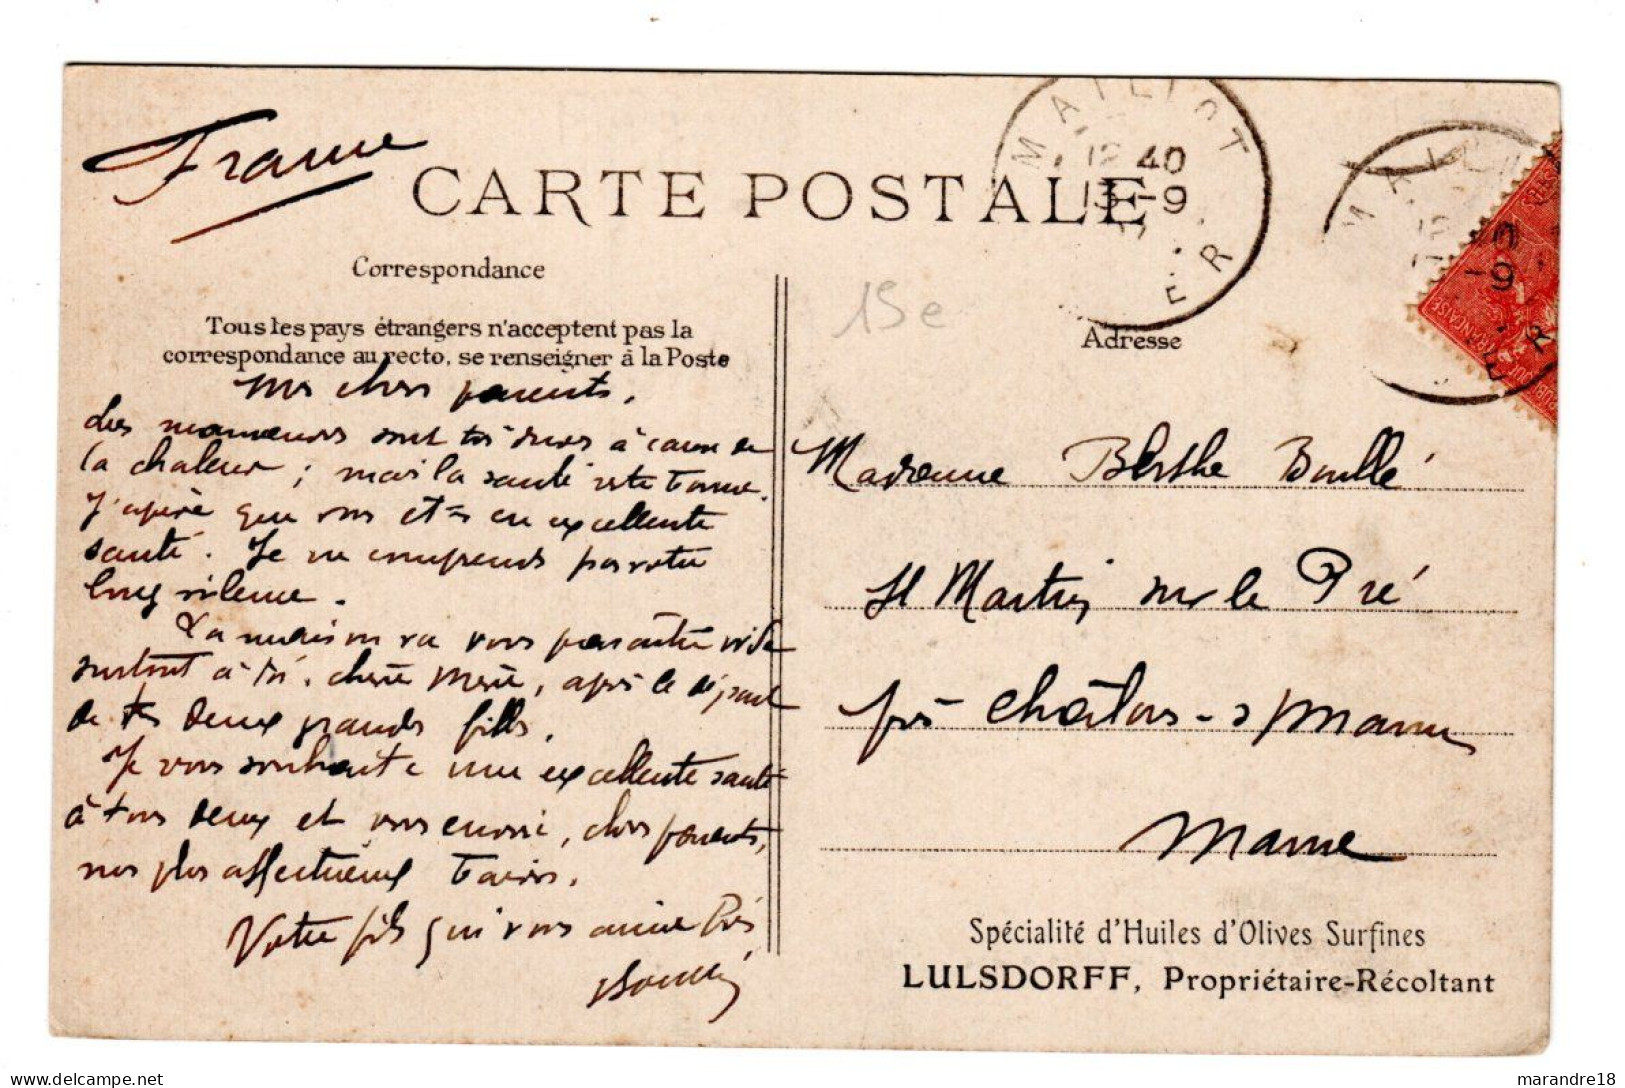 France
CARTE POSTALE
MAILLOT
12 40
13 -9
ER
MAIL
-9
ER
FRANÇAISE
Correspondance
Tous les pays étrangers n'acceptent pas la
correspondance au recto, se renseigner à la Poste
15e
Adresse
Mes chers parents,
Les manœuvres sont très dures à cause de
la chaleur ; mais la santé reste bonne.
J'espère que vous êtes en excellente
santé. Je ne comprends pas votre
long silence.
La maison va vous paraître vide
surtout à toi, chère Mère, après le départ
de tes deux grands fills.
Je vous souhaite une excellente santé
à tous deux et vous envoie, chers parents,
nos plus affectueux baisers.
Votre fils qui vous aime
Boullé
Madame Berthe Boullé
St Martin sur le Pré
près Châlons-s Marne
Marne
Spécialité d'Huiles d'Olives Surfines
LULSDORFF, Propriétaire-Récoltant
delcampe.net
marandre18